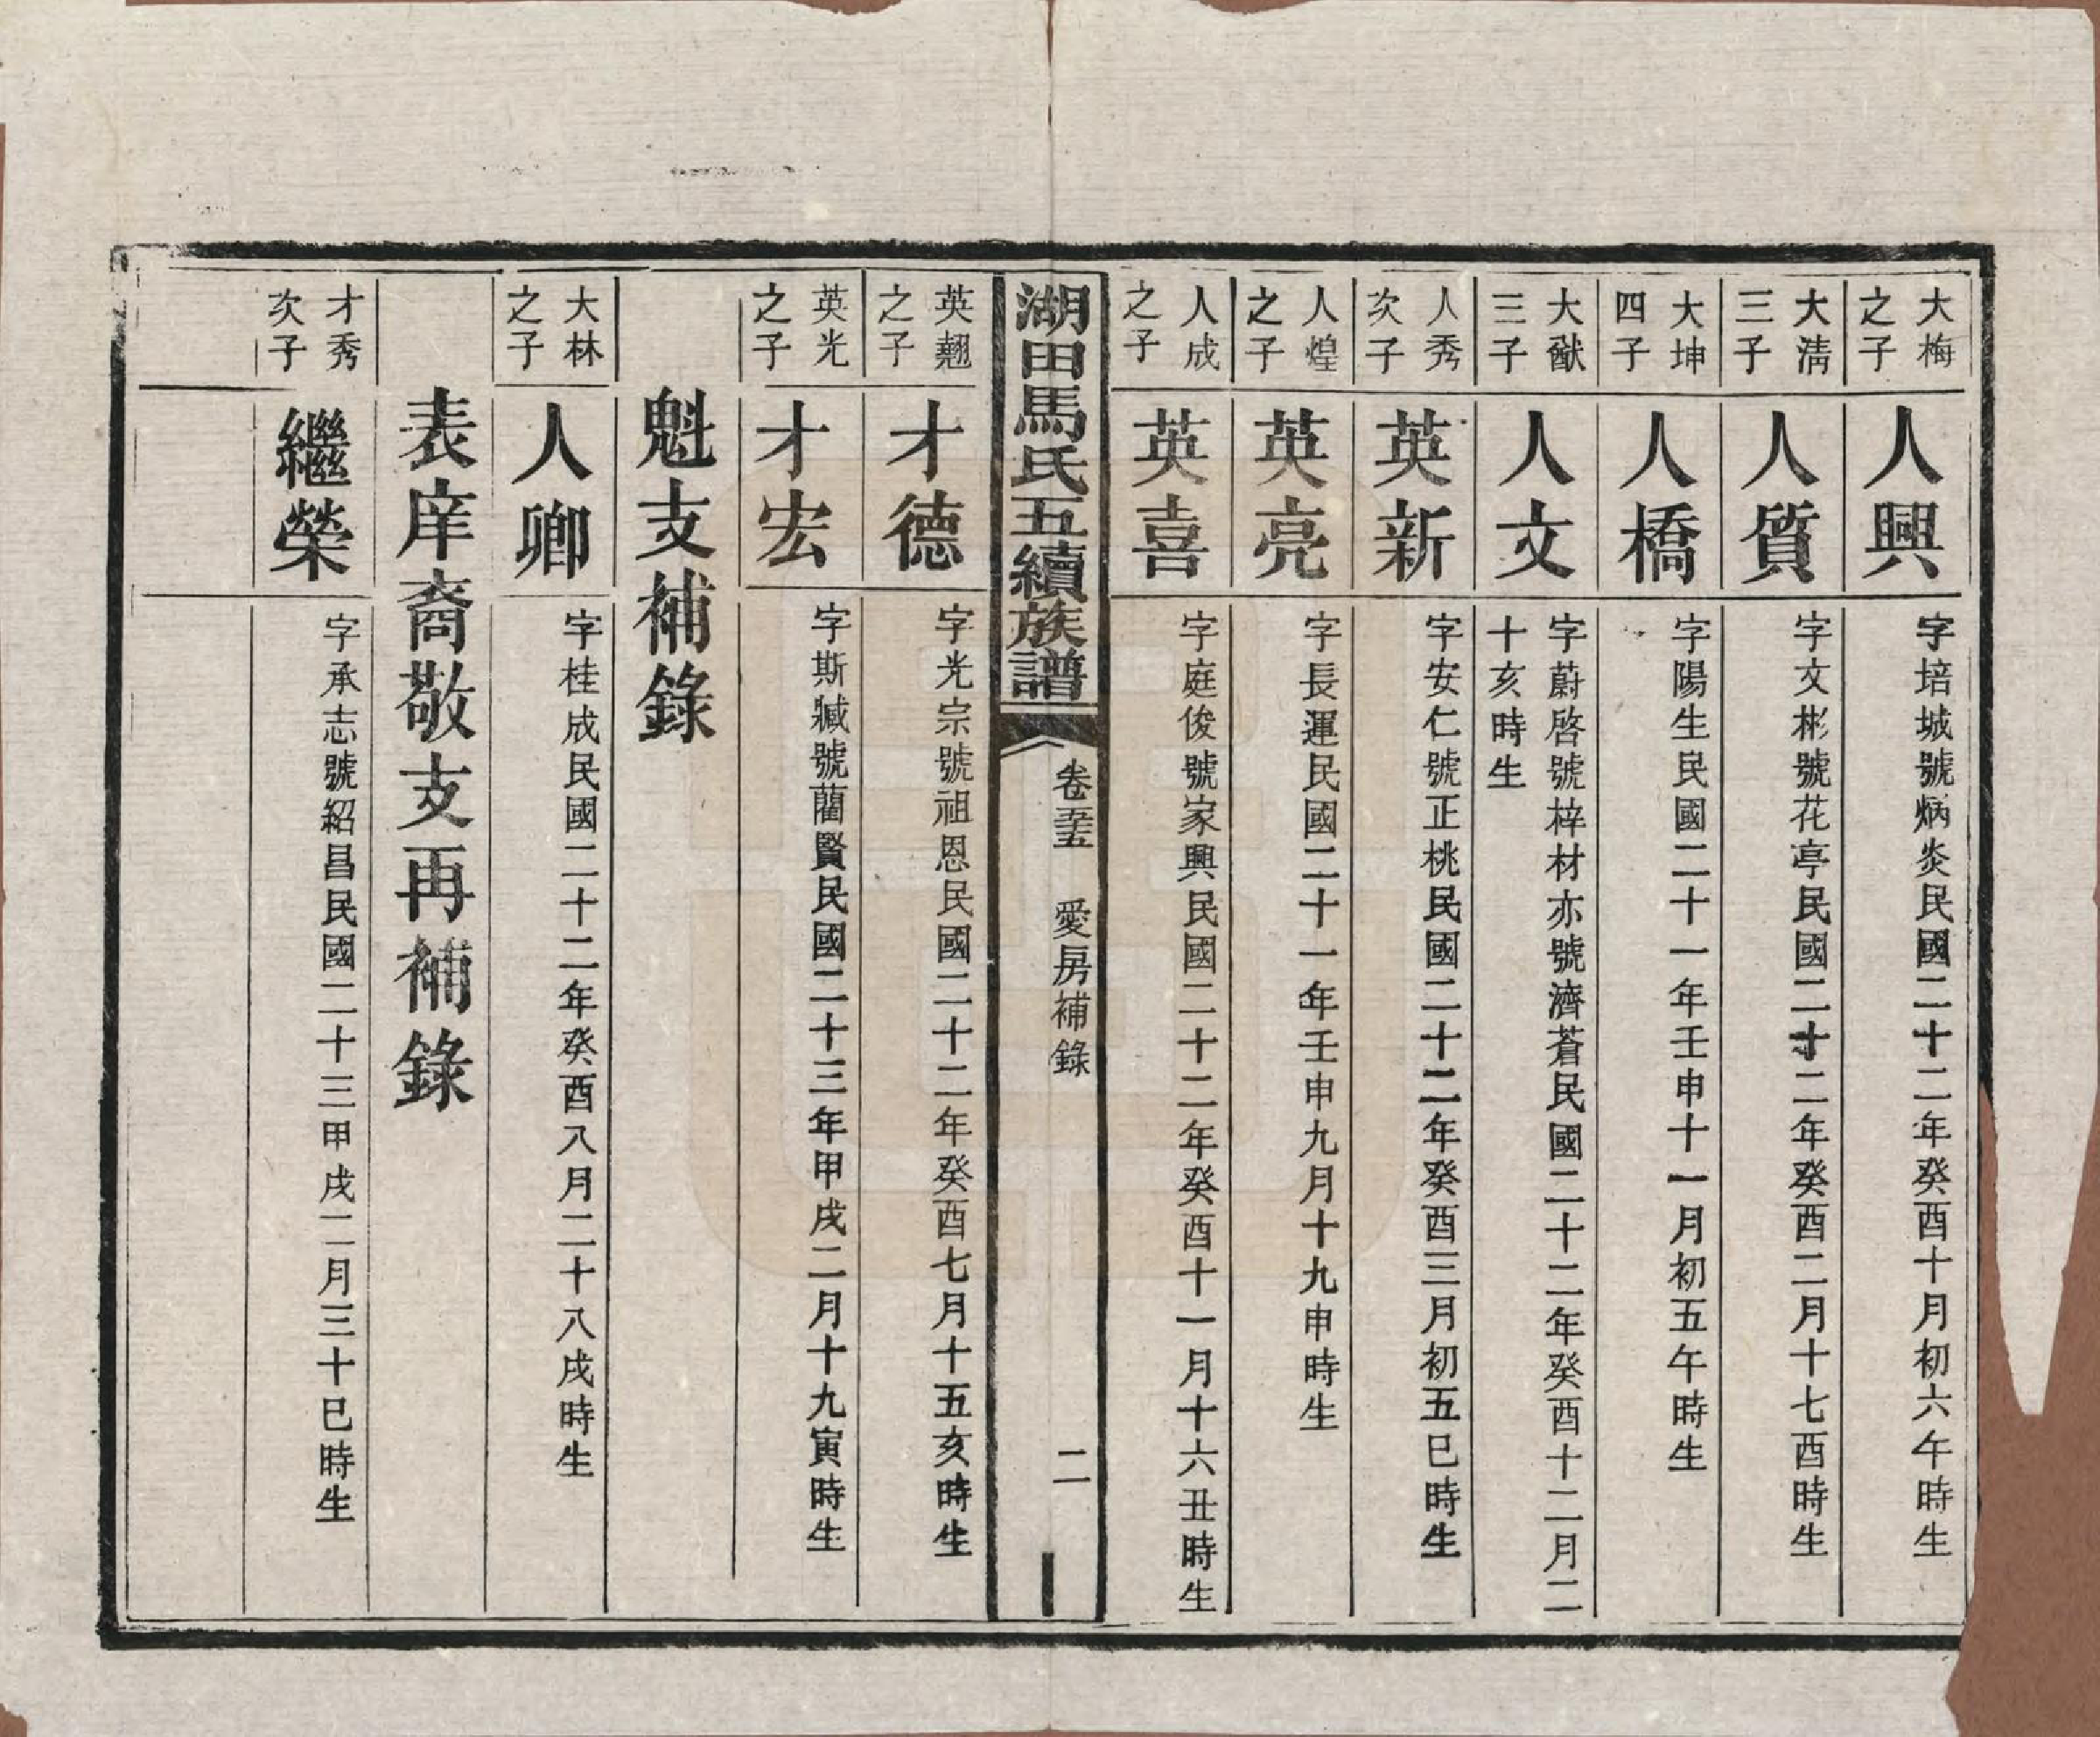 大梅之子
人興
字培城號炳炎民國二十二年癸酉十月初六午時生
大淸三子
人質
字文彬號花亭民國二十二年癸酉二月十七酉時生
大坤四子
人橋
字陽生民國二十一年壬申十一月初五午時生
大猷三子
人文
字蔚啓號梓材亦號濟蒼民國二十二年癸酉十二月二
十亥時生
人秀次子
英新
字安仁號正桃民國二十二年癸酉三月初五巳時生
人煌之子
英亮
字長運民國二十一年壬申九月十九申時生
人成之子
英喜
字庭俊號家興民國二十二年癸酉十一月十六丑時生
湖田馬氏五續族譜
卷五 愛房補錄
二
英翹之子
才德
字光宗號祖恩民國二十二年癸酉七月十五亥時生
英光之子
才宏
字斯臧號藺賢民國二十三年甲戌二月十九寅時生
魁支補錄
大林之子
人卿
字桂成民國二十二年癸酉八月二十八戌時生
表庠裔敬支再補錄
才秀次子
繼榮
字承志號紹昌民國二十三甲戌二月三十巳時生